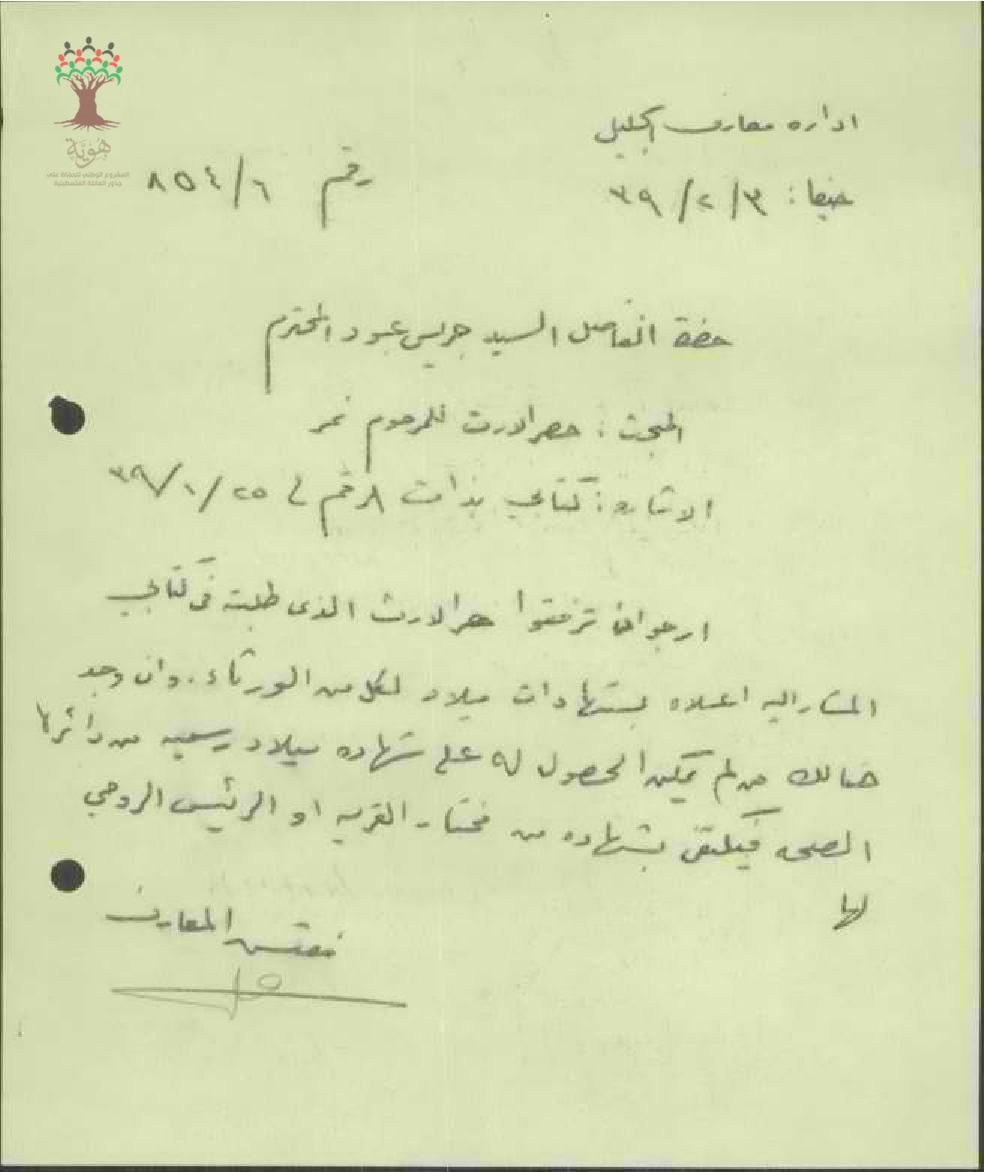 هوية
المشروع الوطني للحفاظ على
جذور العائلة الفلسطينية
اداره معارف الجليل
حيفا: ٣ / ٢ / ٣٩
رقم ٦ / ٨٥٤
حضرة الفاضل السيد جريس عبود المحترم
المبحث: حصر الارث للمرحوم نمر
الاشاره: كتابي بذات الرقم في ٢٥ / ١ / ٣٩
ارجو ان ترفقوا حصر الارث الذى طلبته في كتابي
المشار اليه اعلاه بشهادات ميلاد لكل من الورثاء. وان وجد
هنالك من لم يمكن الحصول له على شهاده ميلاد رسميه من دائرة
الصحه فيكتفى بشهاده من مختار القريه او الرئيس الروحي
لها
مفتش المعارف